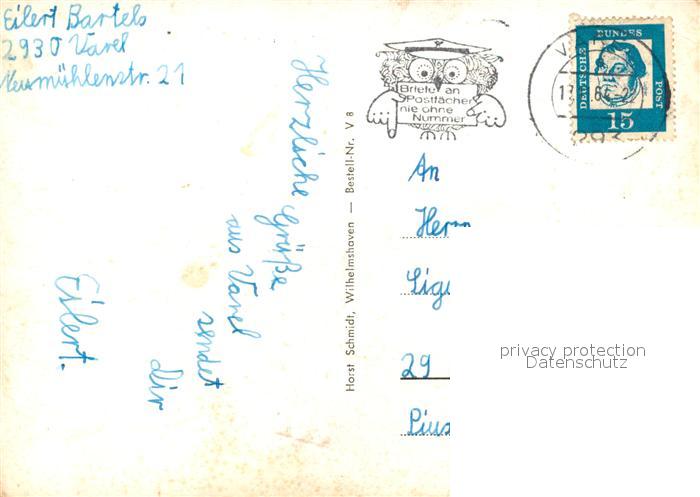 Eilert Bartels
2930 Varel
Neumühlenstr. 21
Herzliche Grüße
aus Varel
sendet
Dir
Eilert.
Horst Schmidt, Wilhelmshaven — Bestell-Nr. V 8
Briefe an
Postfächer
nie ohne
Nummer
DEUTSCHE
BUNDES
POST
15
An
Herrn
29
privacy protection
Datenschutz